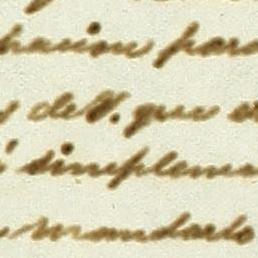 hacion para
y de V. que e
simplemen
mandarlo